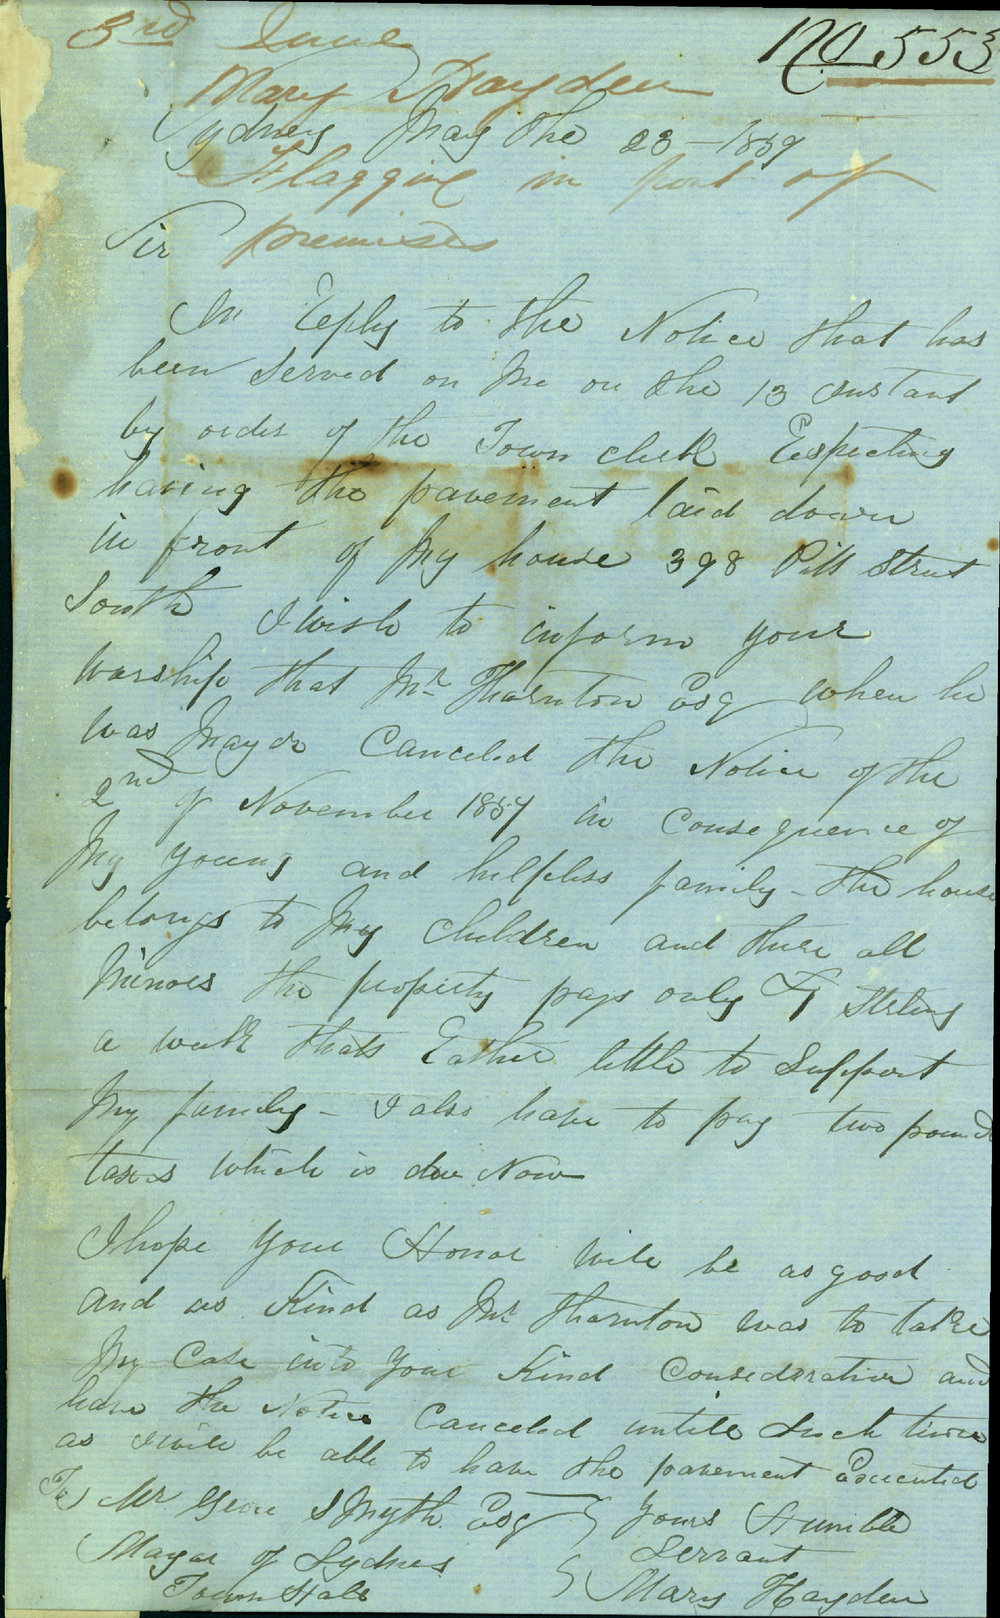 No 553
3rd June
Mary Hayden
Sydney May the 23 - 1859
Flagging in front of
premises
Sir
In Reply to the Notice that has
been Served on Me on the 13 Instant
by order of the Town clerk Respecting
having the pavement laid down
in front of My house 398 Pitt Street
South I wish to inform your
Warship that Mr Tharnton Esq when he
was Mayor Canceled the Notice of the
2nd of November 1857 in Consequence of
My young and helpless family - the house
belongs to My Children and there all
Minors the property pays only £1 Sterling
a week thats Rather little to Support
My family - I also have to pay two pound
taxes which is due Now
I hope your Honor will be as good
and as Kind as Mr Tharnton was to take
My Case into your Kind Consideration and
have the Notice Canceled untill Such time
as I will be able to have the pavement Executed
To Mr Geor Smyth Esq
Mayor of Sydney
Town Hall
Yours Humble
Servant
Mary Hayden